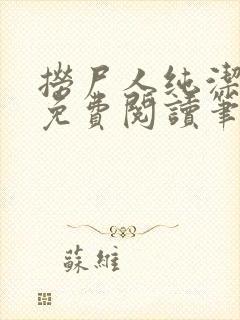 撈尸人純潔
免費閱讀筆
蘇維